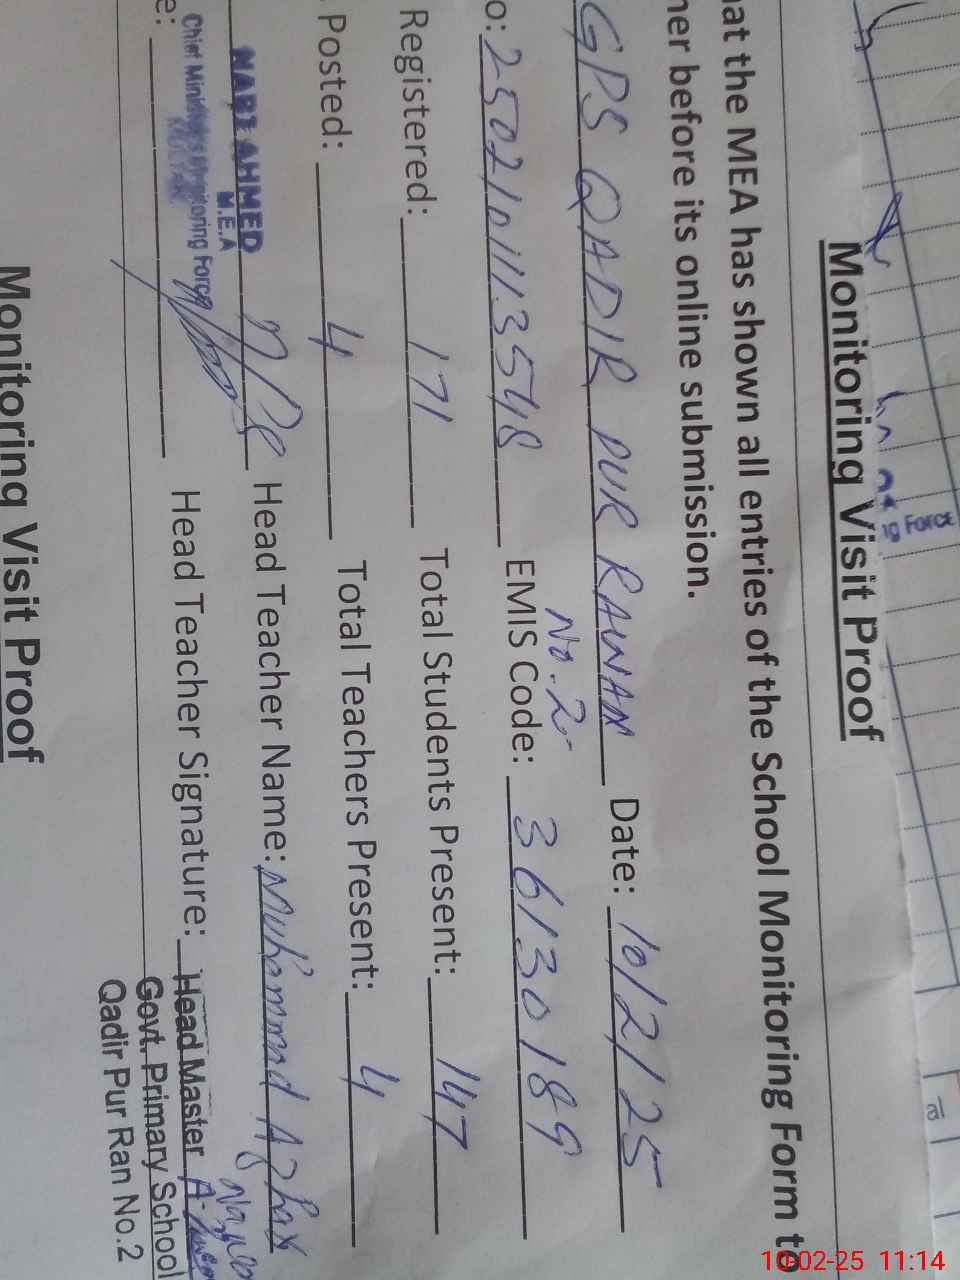 ng Force
Monitoring Visit Proof
hat the MEA has shown all entries of the School Monitoring Form to
her before its online submission.
GPS QADIR PUR RAWAN Date: 10/2/25
No. 2
o: 25021011113548 EMIS Code: 36130189
Registered: 171 Total Students Present: 147
Posted: 4 Total Teachers Present: 4
AHMED Head Teacher Name: Muhammad Azhar
M.E.A
Chief Minister's Monitoring Force
e: Head Teacher Signature: Head Master
Govt. Primary School
Qadir Pur Ran No.2
Monitoring Visit Proof
10-02-25 11:14